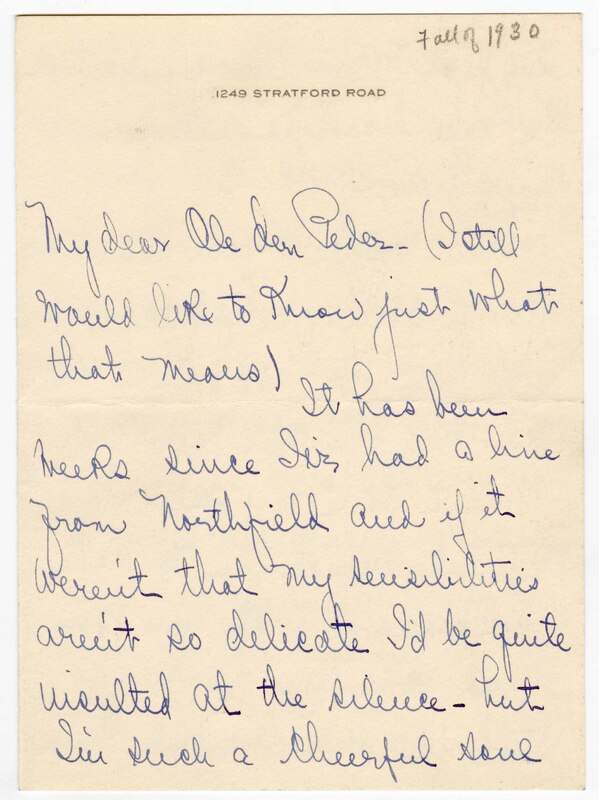 Fall of 1930
1249 STRATFORD ROAD
My dear Ole den Peder - (I still
would like to know just what
that means)
It has been
weeks since I've had a line
from Northfield and if it
weren't that my sensibilities
aren't so delicate I'd be quite
insulted at the silence - but
I'm such a cheerful soul